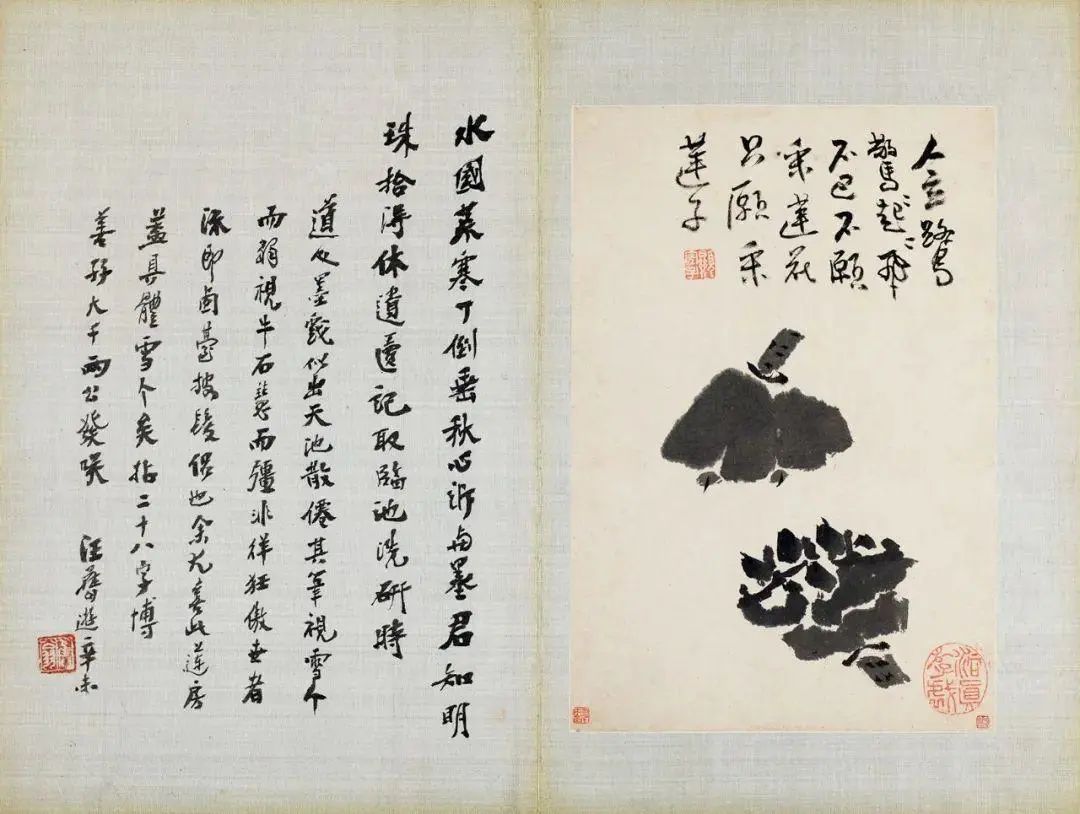 人立鷺
驚起〻飛
不已不願
采蓮花
只願采
蓮子
水國菰寒了倒垂秋心泝與墨君知明
珠拾得休遺還記取臨池洗研時
道人墨戲似出天池散僊其筆視雪个
而弱視牛石慧而彊非徉狂傲世者
流即鹵莽披髮侶也余尤喜此蓮房
蓋具體雪个矣拈二十八字博
善孖大千兩公發笑 汪 游辛未